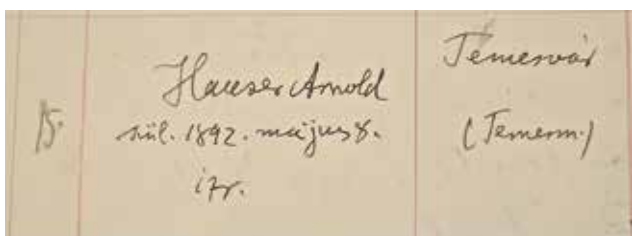 15.
Hauser Arnold
szül. 1892. május 8.
izr.
Temesvár
(Temesm.)